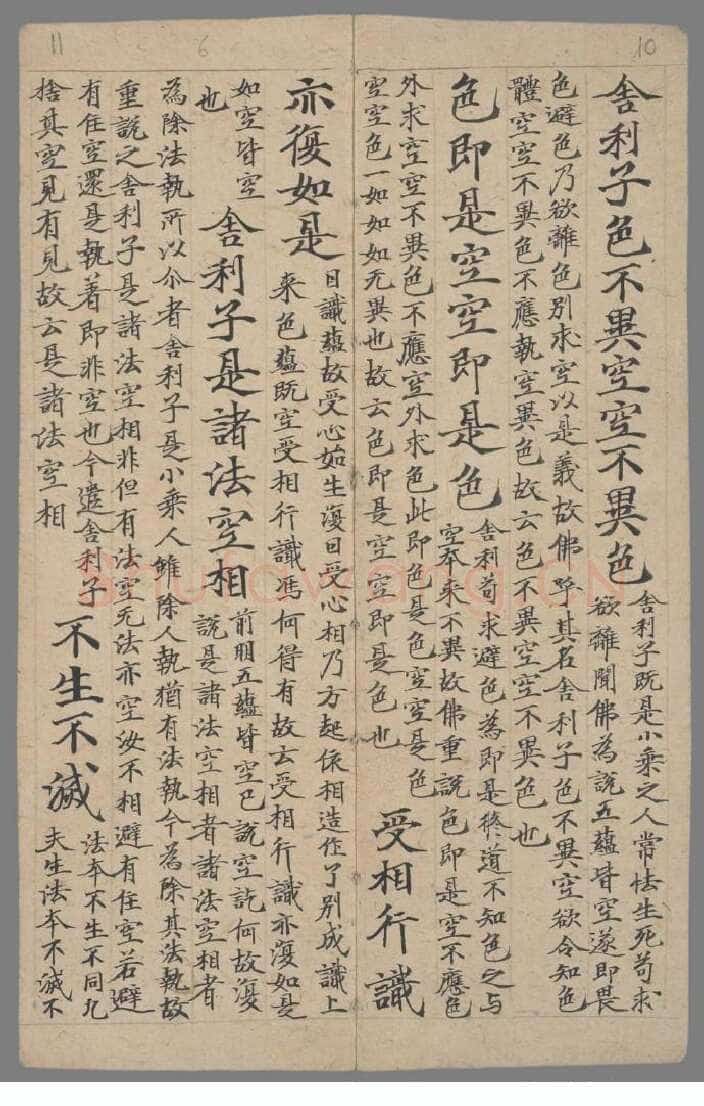 10
舍利子色不異空空不異色
舍利子既是小乘之人常怯生死苟求
欲離聞佛為說五蘊皆空遂即畏
色避色乃欲離色別求空以是義故佛呼其名舍利子色不異空欲令知色
體空空不異色不應執空異色故云色不異空空不異色也
色即是空空即是色
舍利苟求避色為即是修道不知色之与
空本来不異故佛重說色即是空不應色
外求空空不異色不應空外求色此即色是空空是色
空空色一如如如无異也故云色即是空空即是色也
受相行識
11
6
亦復如是
曰識蘊故受心始生復曰受心相乃方起依相造作了別成識上
来色蘊既空受相行識馮何得有故云受相行識亦復如是
如空皆空
也
舍利子是諸法空相
前明五蘊皆空已說空訖何故復
說是諸法空相者諸法空相者
為除法執所以尒者舍利子是小乘人雖除人執猶有法執今為除其法執故
重說之舍利子是諸法空相非但有法空无法亦空汝不相避有住空若避
有住空還是執著即非空也今遣舍利子
捨其空見有見故云是諸法空相
不生不滅
法本不生不同凡
夫生法本不滅不
Shufawang.CN